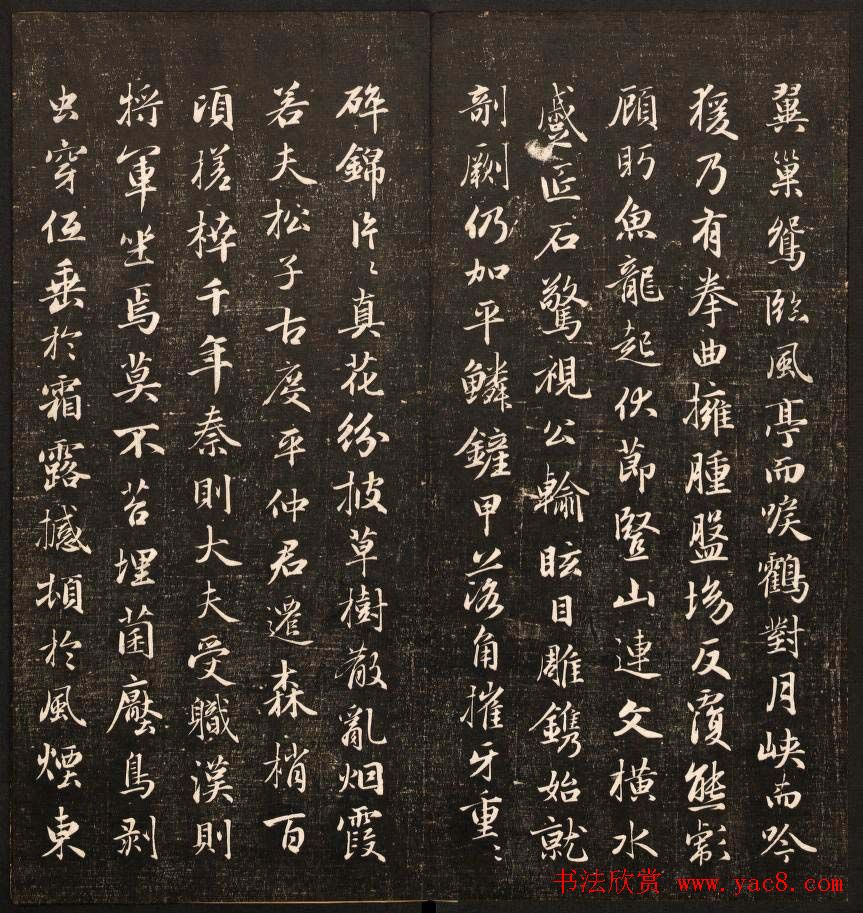 翼巢鴛臨風亭而唳鶴對月峽而吟
猨乃有拳曲擁腫盤坳反覆熊彪
顧眄魚龍起伏節豎山連文橫水
蹙匠石驚視公輸眩目雕鐫始就
剞劂仍加平鱗鏟甲落角摧牙重〻
碎錦片〻真花紛披草樹散亂烟霞
若夫松子古度平仲君遷森梢百
頃槎枿千年秦則大夫受軄漢則
將軍坐焉莫不苔埋菌壓鳥剥
虫穿低垂於霜露撼頓於風煙東
书法欣赏 www.yac8.com